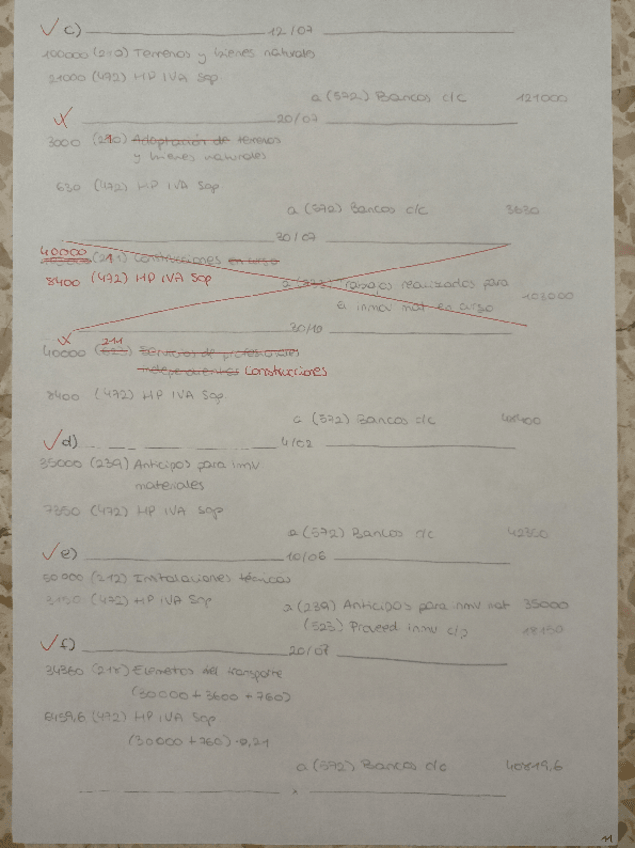 ✓ c) 12/07
100000 (210) Terrenos y bienes naturales
21000 (472) HP IVA Sop
a (572) Bancos c/c 121000
20/07
3000 (210) Adaptación de terrenos
y bienes naturales
630 (472) HP IVA Sop
a (572) Bancos c/c 3630
30/07
40000 (211) Construcciones en curso
8400 (472) HP IVA Sop
a (733) Trabajos realizados para
el inmov mat en curso 103000
30/10
211
40000 (623) Servicios de profesionales
independientes Construcciones
8400 (472) HP IVA Sop
a (572) Bancos c/c 48400
✓ d) 4/02
35000 (239) Anticipos para inmv
materiales
7350 (472) HP IVA Sop
a (572) Bancos c/c 42350
✓ e) 10/06
50000 (212) Instalaciones técnicas
3150 (472) HP IVA Sop a (239) Anticipos para inmv mat 35000
(523) Proveed inmv c/p 18150
✓ f) 20/08
34360 (218) Elementos del transporte
(30000 + 3600 + 760)
6459,6 (472) HP IVA Sop
(30000 + 760) · 0,21
a (572) Bancos c/c 40819,6
x
11